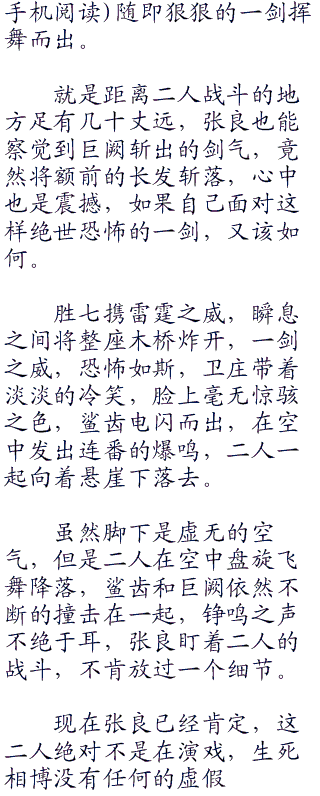 手机阅读)随即狠狠的一剑挥
舞而出。
就是距离二人战斗的地
方足有几十丈远，张良也能
察觉到巨阙斩出的剑气，竟
然将额前的长发斩落，心中
也是震撼，如果自己面对这
样绝世恐怖的一剑，又该如
何。
胜七携雷霆之威，瞬息
之间将整座木桥炸开，一剑
之威，恐怖如斯，卫庄带着
淡淡的冷笑，脸上毫无惊骇
之色，鲨齿电闪而出，在空
中发出连番的爆鸣，二人一
起向着悬崖下落去。
虽然脚下是虚无的空
气，但是二人在空中盘旋飞
舞降落，鲨齿和巨阙依然不
断的撞击在一起，铮鸣之声
不绝于耳，张良盯着二人的
战斗，不肯放过一个细节。
现在张良已经肯定，这
二人绝对不是在演戏，生死
相博没有任何的虚假